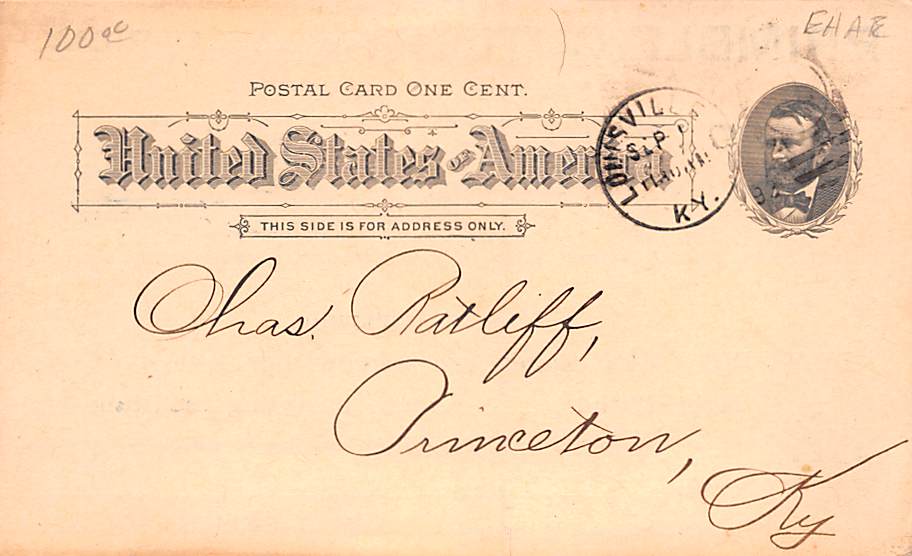 100 00
EHAR
POSTAL CARD ONE CENT.
United States of America
THIS SIDE IS FOR ADDRESS ONLY.
LOUISVILLE
SEP
KY.
Chas. Ratliff,
Princeton,
Ky